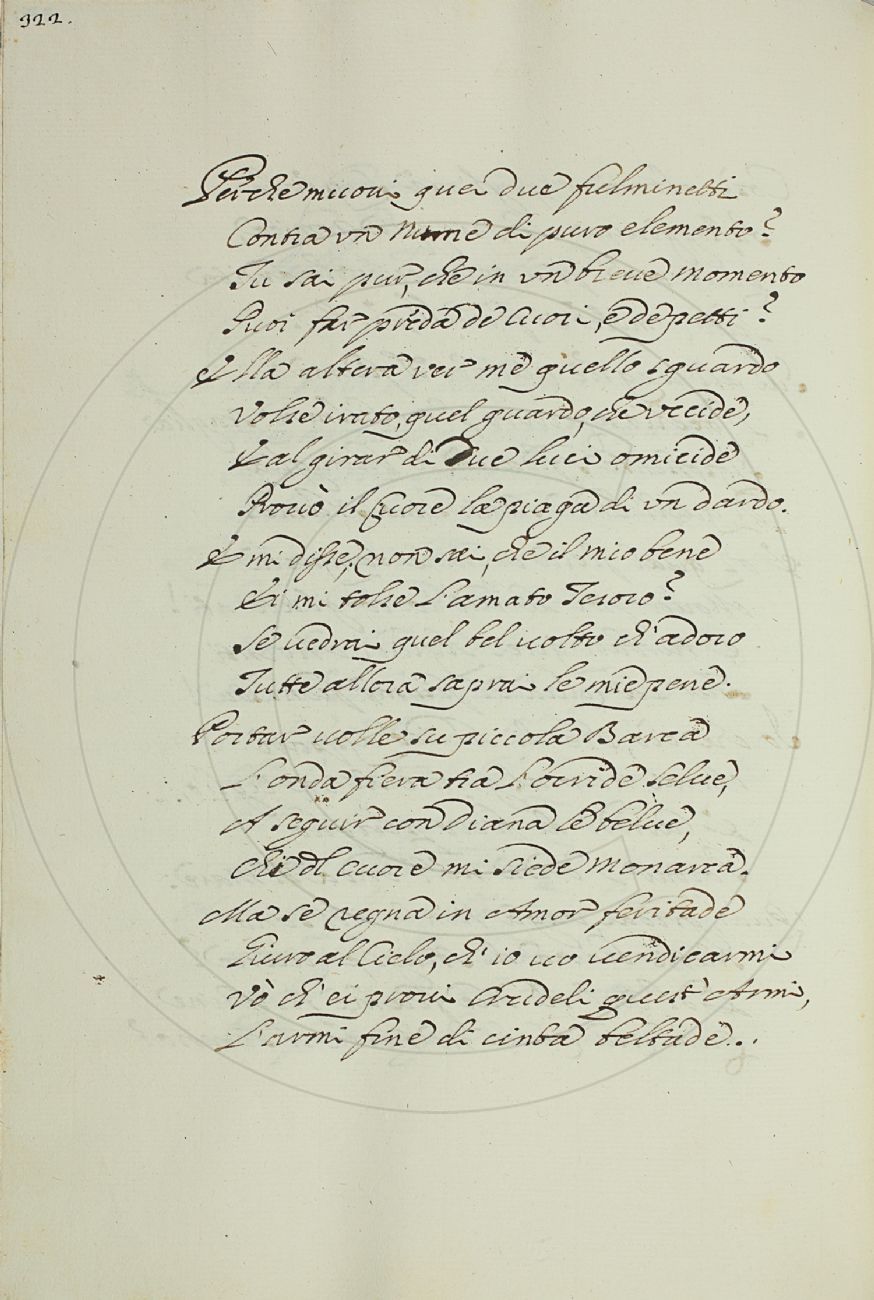 322.
Perche muovi quei due fulminetti
Contra vn Nume di puro elemento?
Tu sai pur, che in vn breue momento
Puoi far preda de Cuori, e de petti?
Ella altera uer me quello sguardo
Volse irato, quel guardo, che vccide,
E al girar di Due luci omicide
Prouò il Cuore la piaga di vn dardo.
E mi disse, non sai, che il mio bene
Ei mi tolse L'amato Tesoro?
Se uedrai quel bel uolto ch'adoro
Tutte allora saprai le mie pene.
Portar uolle su piccola Barca
L'onda fiera tra L'orride selue,
A seguir con Diana le belue,
Chi dl Cuore mi siede Monarca.
Ma se regna in Amor feritade
Giuro al Cielo, ch'io uo uendicarmi
Vò ch'ei proui Crudeli quest'Armi,
L'armi fine di cinta beltade..